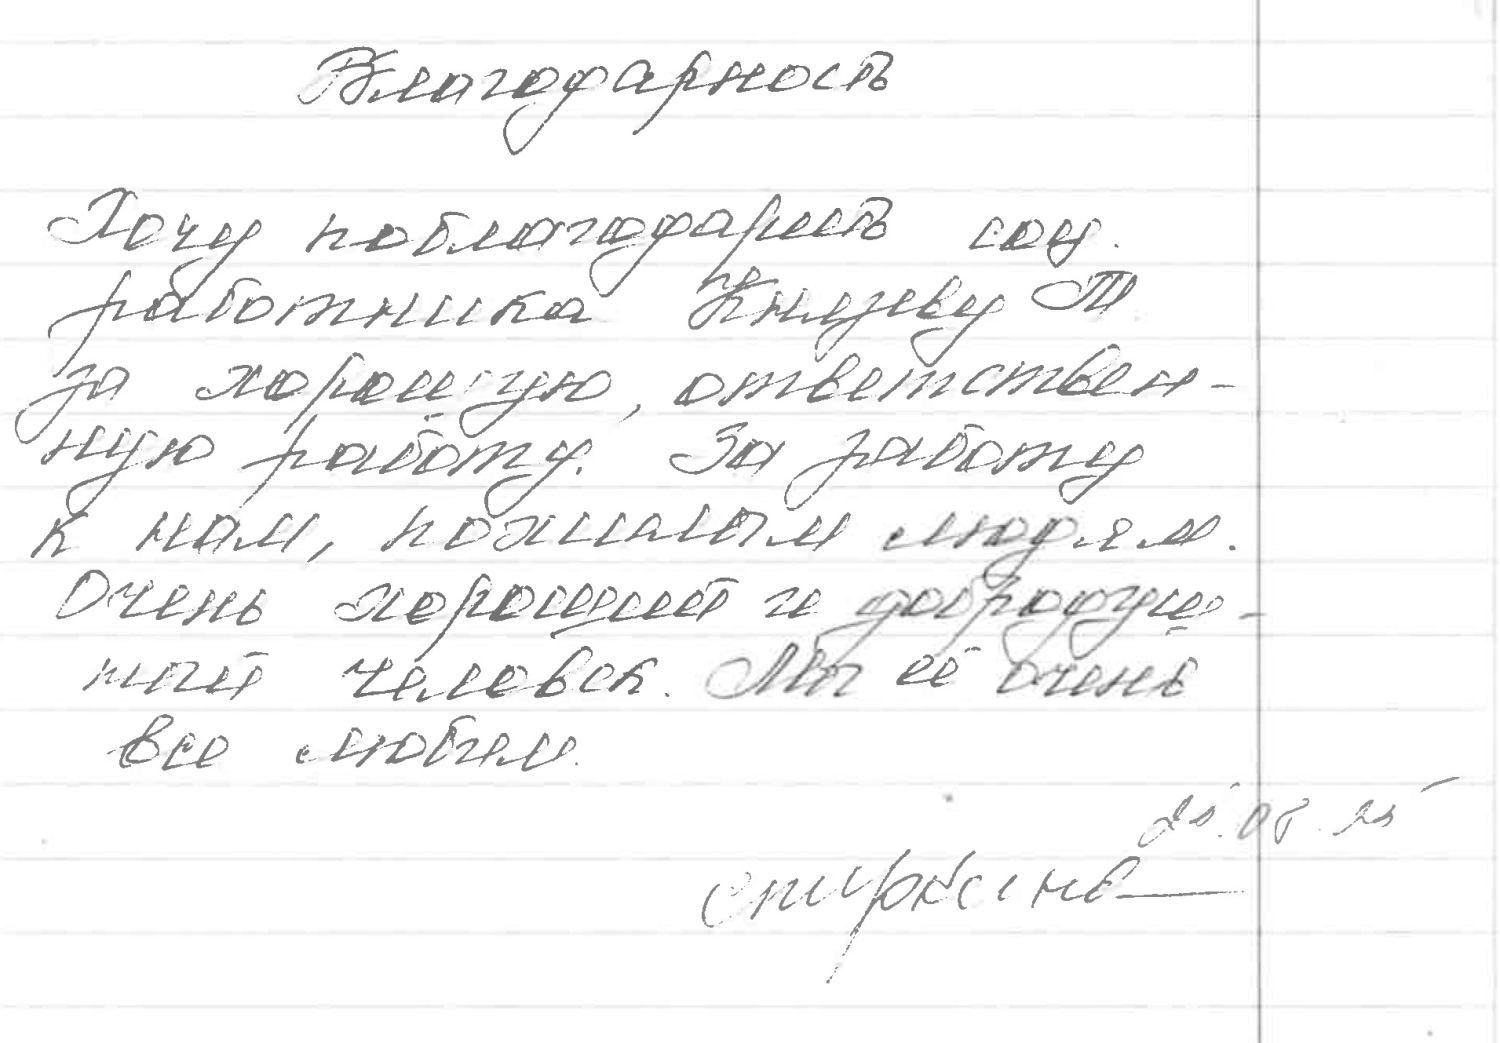 Благодарность
Хочу поблагодарить соц.
работника Князеву Т
за хорошую, ответствен-
ную работу. За заботу
к нам, пожилым людям.
Очень хороший и добродуш-
ный человек. Мы её очень
все любим.
25.08.25